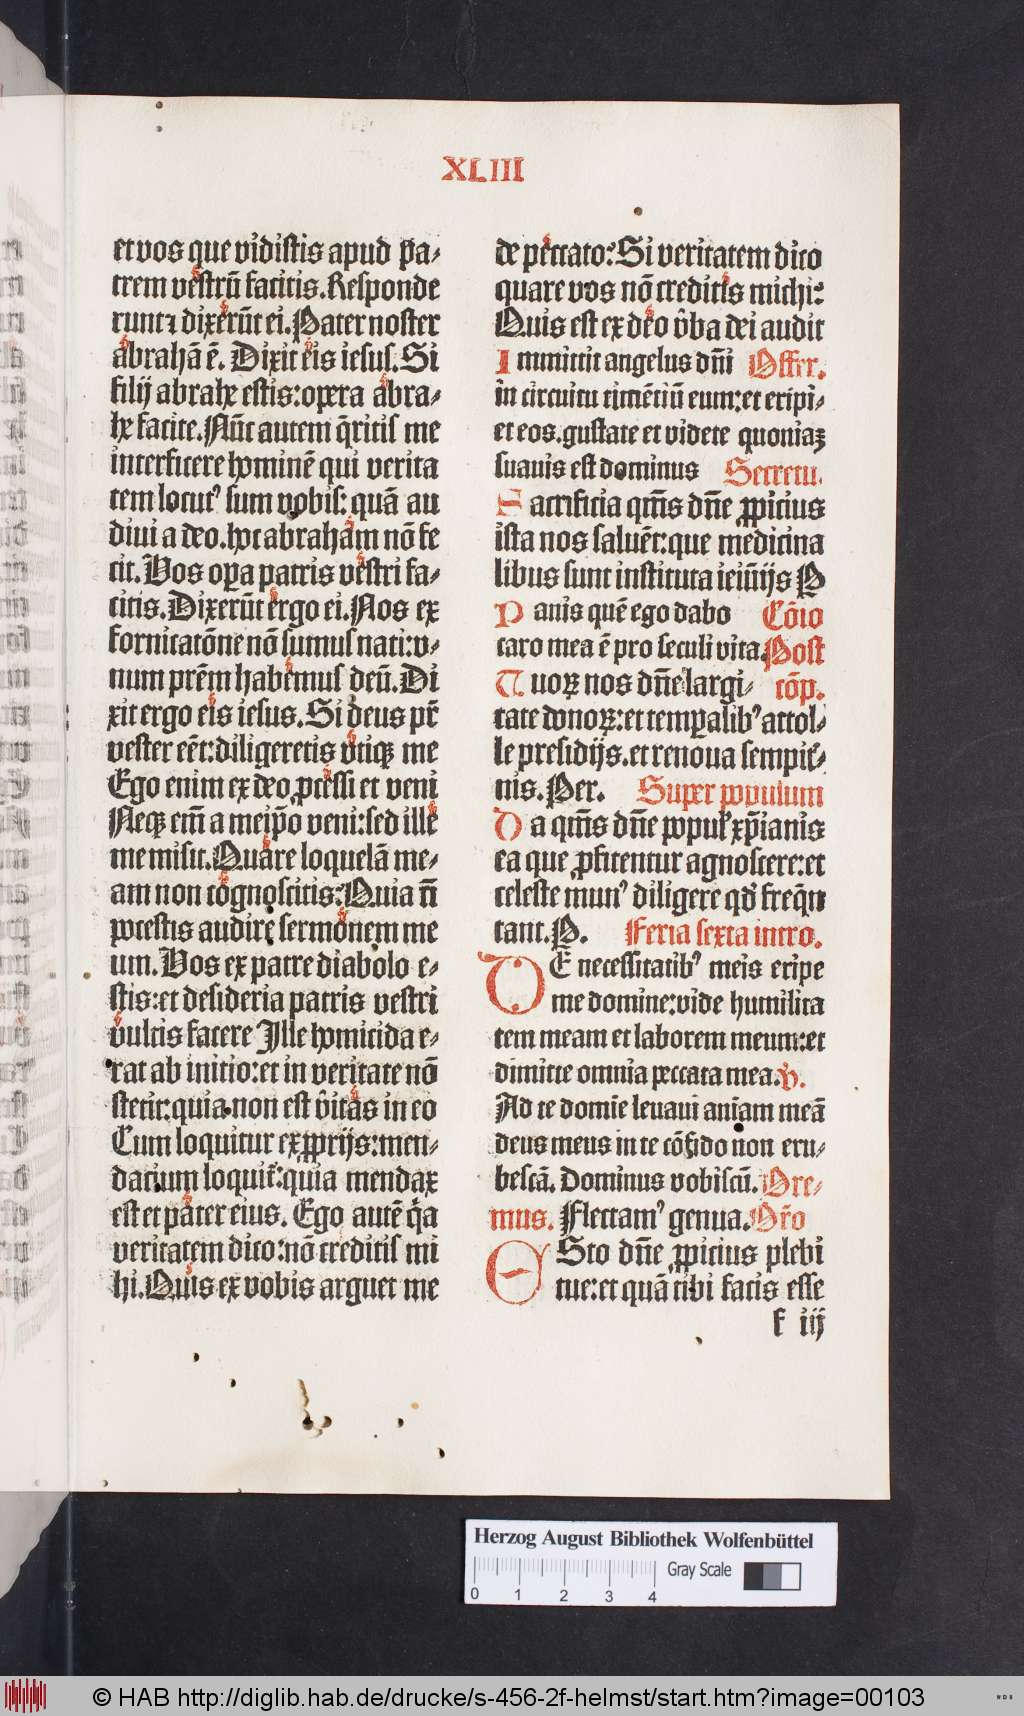 XLIII
et vos que vidistis apud pa⸗
trem vestrū facitis. Responde
runt ⁊ dixerūt ei. Pater noster
abrahā ē. Dixit eis iesus. Si
filij abrahe estis: opera abra⸗
he facite. Nūc autem q̄ritis me
interficere hominē qui verita
tem locutꝰ sum vobis: quā au
diui a deo. hoc abraham nō fe
cit. Vos oꝑa patris vestri fa⸗
citis. Dixerūt ergo ei. Nos ex
fornicatōne nō sumus nati: v⸗
num prēm habemus deū. Di
xit ergo eis iesus. Si deus pr̄
vester eēt: diligeretis vtiqꝫ me
Ego enim ex deo ꝓcessi et veni
Neqꝫ em̄ a meip̄o veni: sed ille
me misit. Quare loquelā me⸗
am non cognoscitis: Quia nō
potestis audire sermonem me
um. Vos ex patre diabolo e⸗
stis: et desideria patris vestri
vultis facere Ille homicida e⸗
rat ab initio: et in veritate nō
stetit: quia non est v̄itas in eo
Cum loquitur ex ꝓprijs: men⸗
dacium loquit᷑: quia mendax
est et pater eius. Ego autē q̄a
veritatem dico: nō creditis mi
hi. Quis ex vobis arguet me
de peccato: Si veritatem dico
quare vos nō creditis michi:
Quis est ex deo v̄ba dei audit
Immittit angelus dn̄i Offer.
in circuitu timētiū eum: et eripi⸗
et eos. gustate et videte quoniaꝫ
suauis est dominus Secretu.
Sacrificia qm̄s dn̄e ꝓpicius
ista nos saluēt: que medicina
libus sunt instituta ieiūijs P
Panis quē ego dabo Cōio
caro mea ē pro seculi vita. Post
Tuoꝝ nos dn̄e largi⸗ cōp.
tate donoꝝ: et temꝑalibꝰ attol⸗
le presidijs. et renoua sempit᷑⸗
nis. Per. Super populum
Da qm̄s dn̄e popul᷑ xp̄ianis
ea que ꝓfitentur agnoscere: et
celeste munꝰ diligere qd̄ freq̄n
tant. P. Feria sexta intro.
DE necessitatibꝰ meis eripe
me domine: vide humilita
tem meam et laborem meum: et
dimitte omnia peccata mea. V̄.
Ad te domīe leuaui aniam meā
deus meus in te cōfido non eru⸗
bescā. Dominus vobiscū. Ore⸗
mus. Flectamꝰ genua. Or̄o
ESto dn̄e ꝓpicius plebi
tue: et quā tibi facis esse
f iij
Herzog August Bibliothek Wolfenbüttel
0 1 2 3 4 Gray Scale
© HAB http://diglib.hab.de/drucke/s-456-2f-helmst/start.htm?image=00103